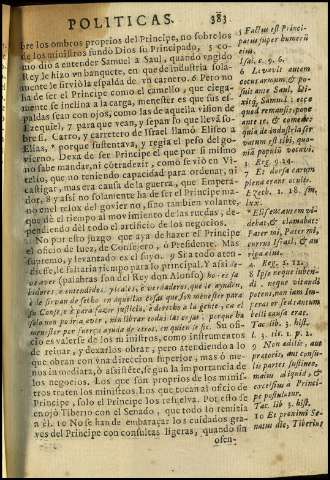 POLITICAS. 383
bre los ombros proprios del Principe, no sobre los
de los ministros fundò Dios su Principado, 5 co
mo diò a entender Samuel a Saul, quando vngido
Rey le hizo vn banquete, en que de industria sola-
mente le sirviò la espalda de vn carnero. 6 Pero no
ha de ser el Principe como el camello, que ciega-
mente se inclina a la carga, menester es que sus es-
paldas sean con ojos, como las de aquella vision de
Ezequiel, 7 para que vean, y sepan lo que llevã so-
bre si. Carro, y carretero de Israel llamò Eliseo a
Elias, * porque sustentava, y regia el peso del go-
vierno. Dexa de ser Principe el que por si mismo
no sabe mandar, ni cõtradezir, como se viò en Vi-
telio, que no teniendo capacidad para ordenar, ni
castigar, mas era causa de la guerra, que Empera-
dor, 8 y assi no solamente ha de ser el Principe ma-
no en el relox del govierno, sino tambien volante,
que dè el tiempo al movimiento de las ruedas, de-
pendiendo dèl todo el artificio de los negocios.
No por esto juzgo que aya de hazer el Principe
el oficio de Iuez, de Consejero, ò Presidente. Mas
supremo, y levantado es el suyo. 9 Si a todo aten-
diesse, le faltaria tiempo para lo principal. Y assi
aver (palabras son del Rey don Alonso)
è le sirvan de fecho en aquellas cosas que son menester para
su Consejo, è para fazer justicia, è derecho a la gente, ca el
solo non podria ver, nin librar todas las cosas, porque ha
menester por fuerça ayuda de otros, en quien se fie. Su ofi-
cio es valerse de los ministros, como instrumentos
de reinar, y dexarlos obrar; pero atendiendo a lo
que obran con vna direccion superior, mas ò me-
nos inmediata, ò assistente, segun la importancia de
los negocios. Los que son proprios de los minis-
tros traten los ministros. Los que tocan al oficio de
Principe, solo el Principe los resuelva. Por esto se
enojò Tiberio con el Senado, que todo lo remitia
a èl. 10 No se han de embaraçar los cuidados gra-
ves del Principe con consultas ligeras, quando sin
ofen-
5 Factus est Princi-
patus super humerũ
eius.
Isai. c. 9. 6.
6 Levavit autem
cocus armum, &
posuit ante Saul, Di-
xitq; Samuel: ecce
quod remansit pone
ante te, & comede:
quia de industria ser-
vatum est tibi, quan-
do populũ vocavi.
1. Reg. 9. 24.
7 Et dorsa earum
plena erant oculis.
Ezech. 1. 18. sm,
lxx.
* Eliseus autem vi-
debat, & clamabat:
Pater mi, Pater mi,
currus Israel, & au
riga eius.
4. Reg. 2. 12.
8 Ipse neque iuben-
di, neque vetandi
potens, non iam Im-
perator sed tantum
belli causa erat.
Tac. lib. 3. hist.
9 Non
pratoris,
partes
maius aliquid, &
excelsius a Princi-
pe postulatur.
Tac. lib 3. hist.
10 Et proximi Se-
natus die, Tiberius